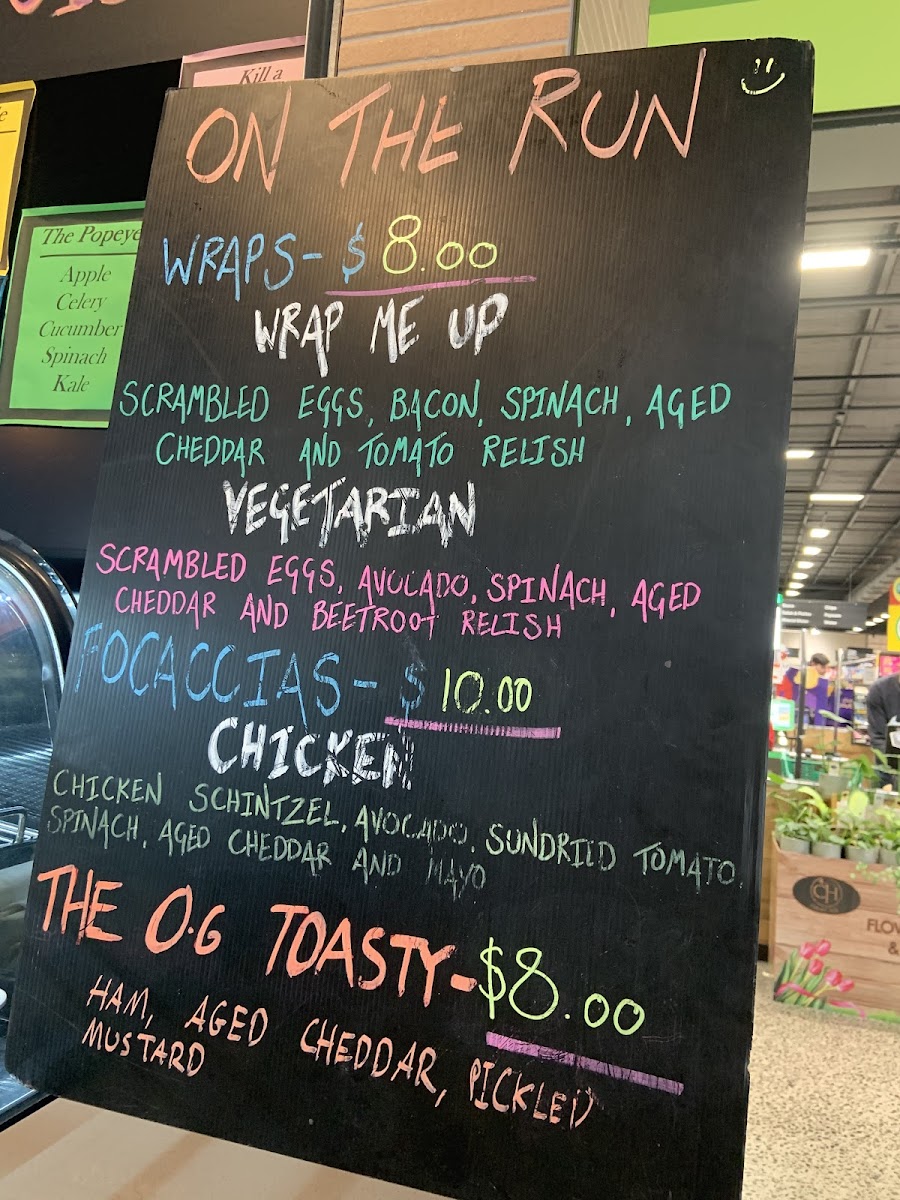 Kill a
The Popeye
Apple
Celery
Cucumber
Spinach
Kale
ON THE RUN
WRAPS- $8.00
WRAP ME UP
SCRAMBLED EGGS, BACON, SPINACH, AGED
CHEDDAR AND TOMATO RELISH
VEGETARIAN
SCRAMBLED EGGS, AVOCADO, SPINACH, AGED
CHEDDAR AND BEETROOT RELISH
FOCACCIAS- $10.00
CHICKEN
CHICKEN SCHINTZEL, AVOCADO, SUNDRIED TOMATO,
SPINACH, AGED CHEDDAR AND MAYO
THE O.G TOASTY-$8.00
HAM, AGED CHEDDAR, PICKLED
MUSTARD
CH
FLOW
&